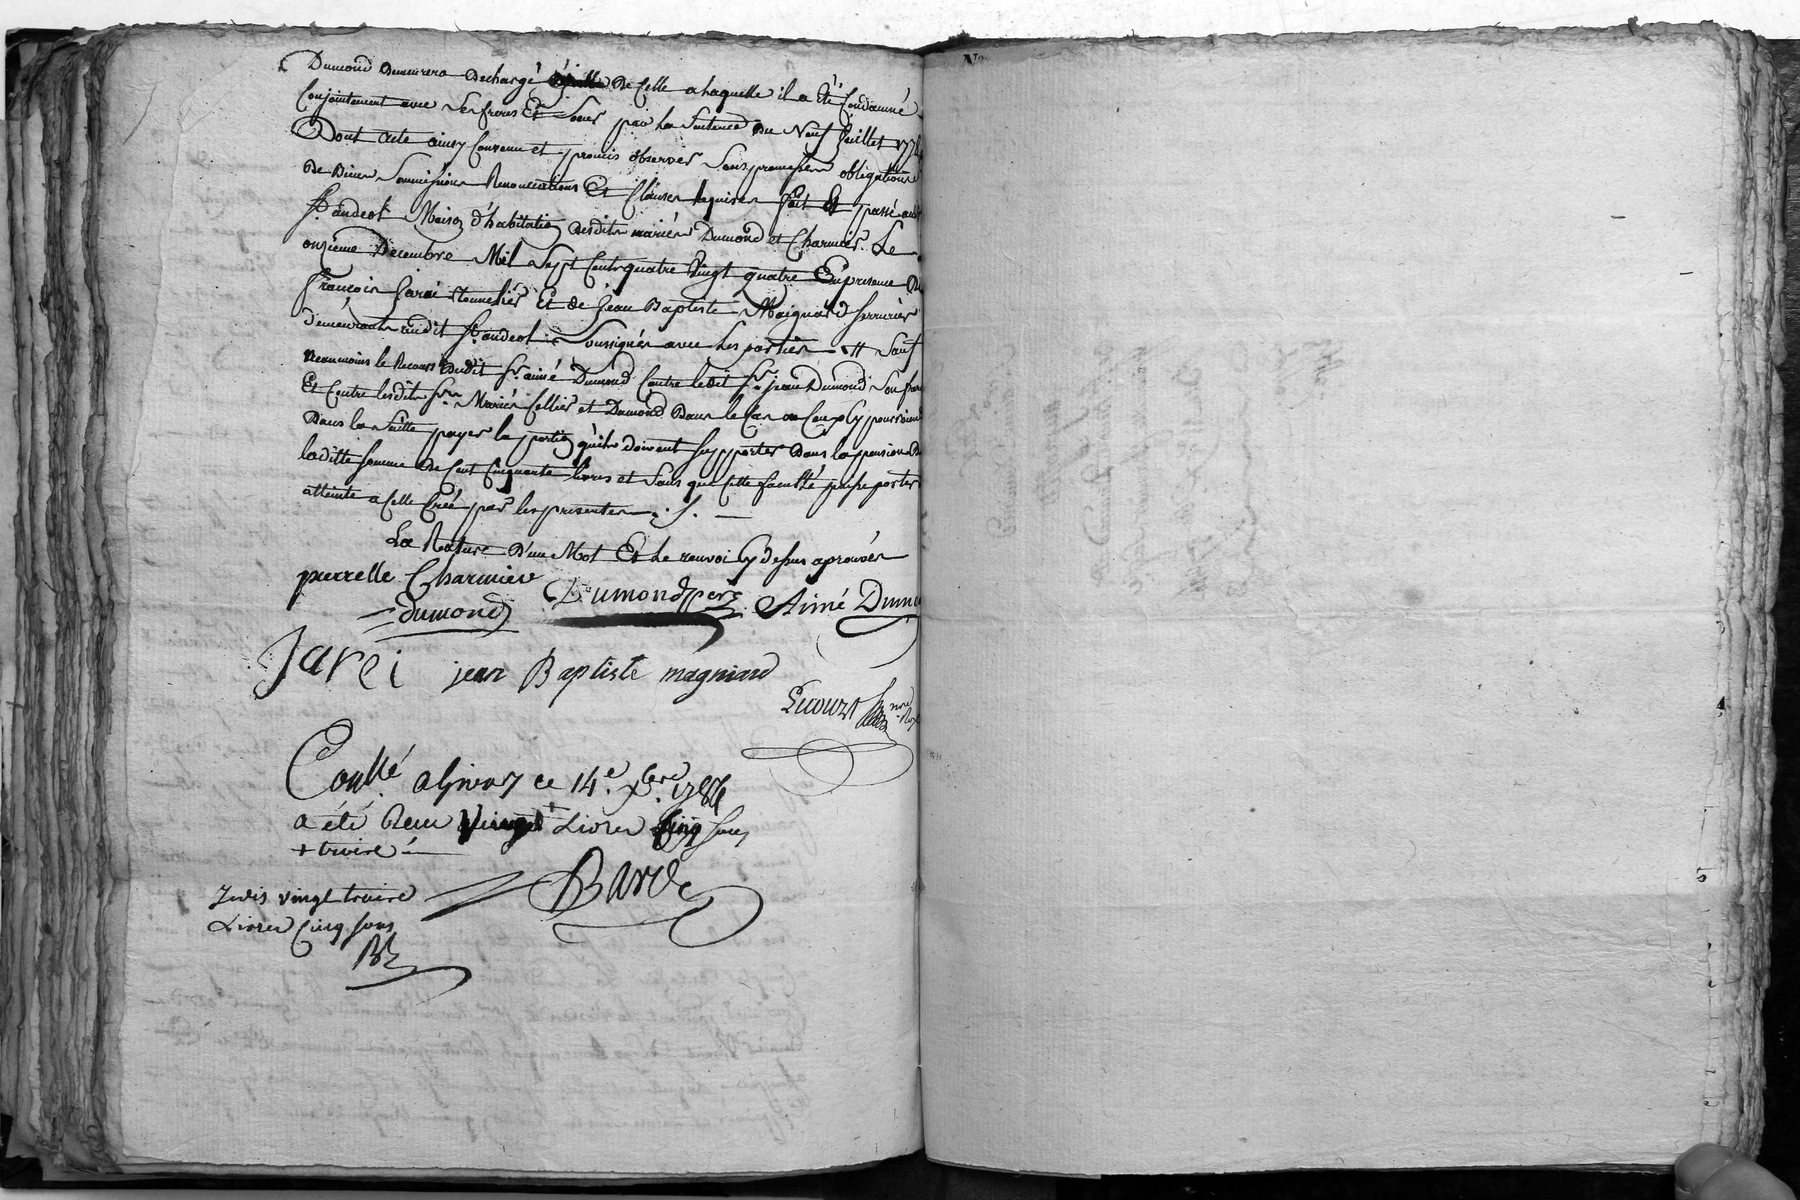 Dumond Demeurera Dechargé De Celle a laquelle il a Eté Condamné
Conjointement avec Ses freres Et Soeur par la Sentence du Neuf Juillet 177
Dont acte ainsy Convenu et promis observer Sous promesses obligations
De Biens Soumissions Renonciations Et Clauses Requises fait Et passé audit
St. andeol Maison d'habitation desdits mariés Dumond et Charmier. Le
onzieme Decembre Mil Sept Cents quatre Vingt quatre En presence De
francois Jarei Tonnelier Et de Jean Baptiste Maignard Serrurier
demeurants audit St. andeol Soussignés avec les parties # Sauf
neanmoins le Recours dudit Sr. aimé Dumond Contre ledit Sr. jean Dumond Son frere
Et Contre lesdits Srs. Mariés Cellier et Dumond Dans le Cas ou Ceux Cy pourroient
Dans la Suitte payer la portion qu'ils doivent Supporter Dans la pension De
laditte Somme De Cent Cinquante livres et Sans que Cette faculté puisse porter
atteinte a Celle Créé par les presentes
La Rature d'un Mot Et le renvoi Cy dessus aprouvés
pierrelle Charmier
Dumond pere Aimé Dumo
dumond
Jarei jean Baptiste magniard
nore
Conllé a Givors ce 14e. Xbre. 1784
a été Recu Vingt + Livres Cinq sous
+ troire
Jedis vingt troire
Livres Cinq sous
Barde